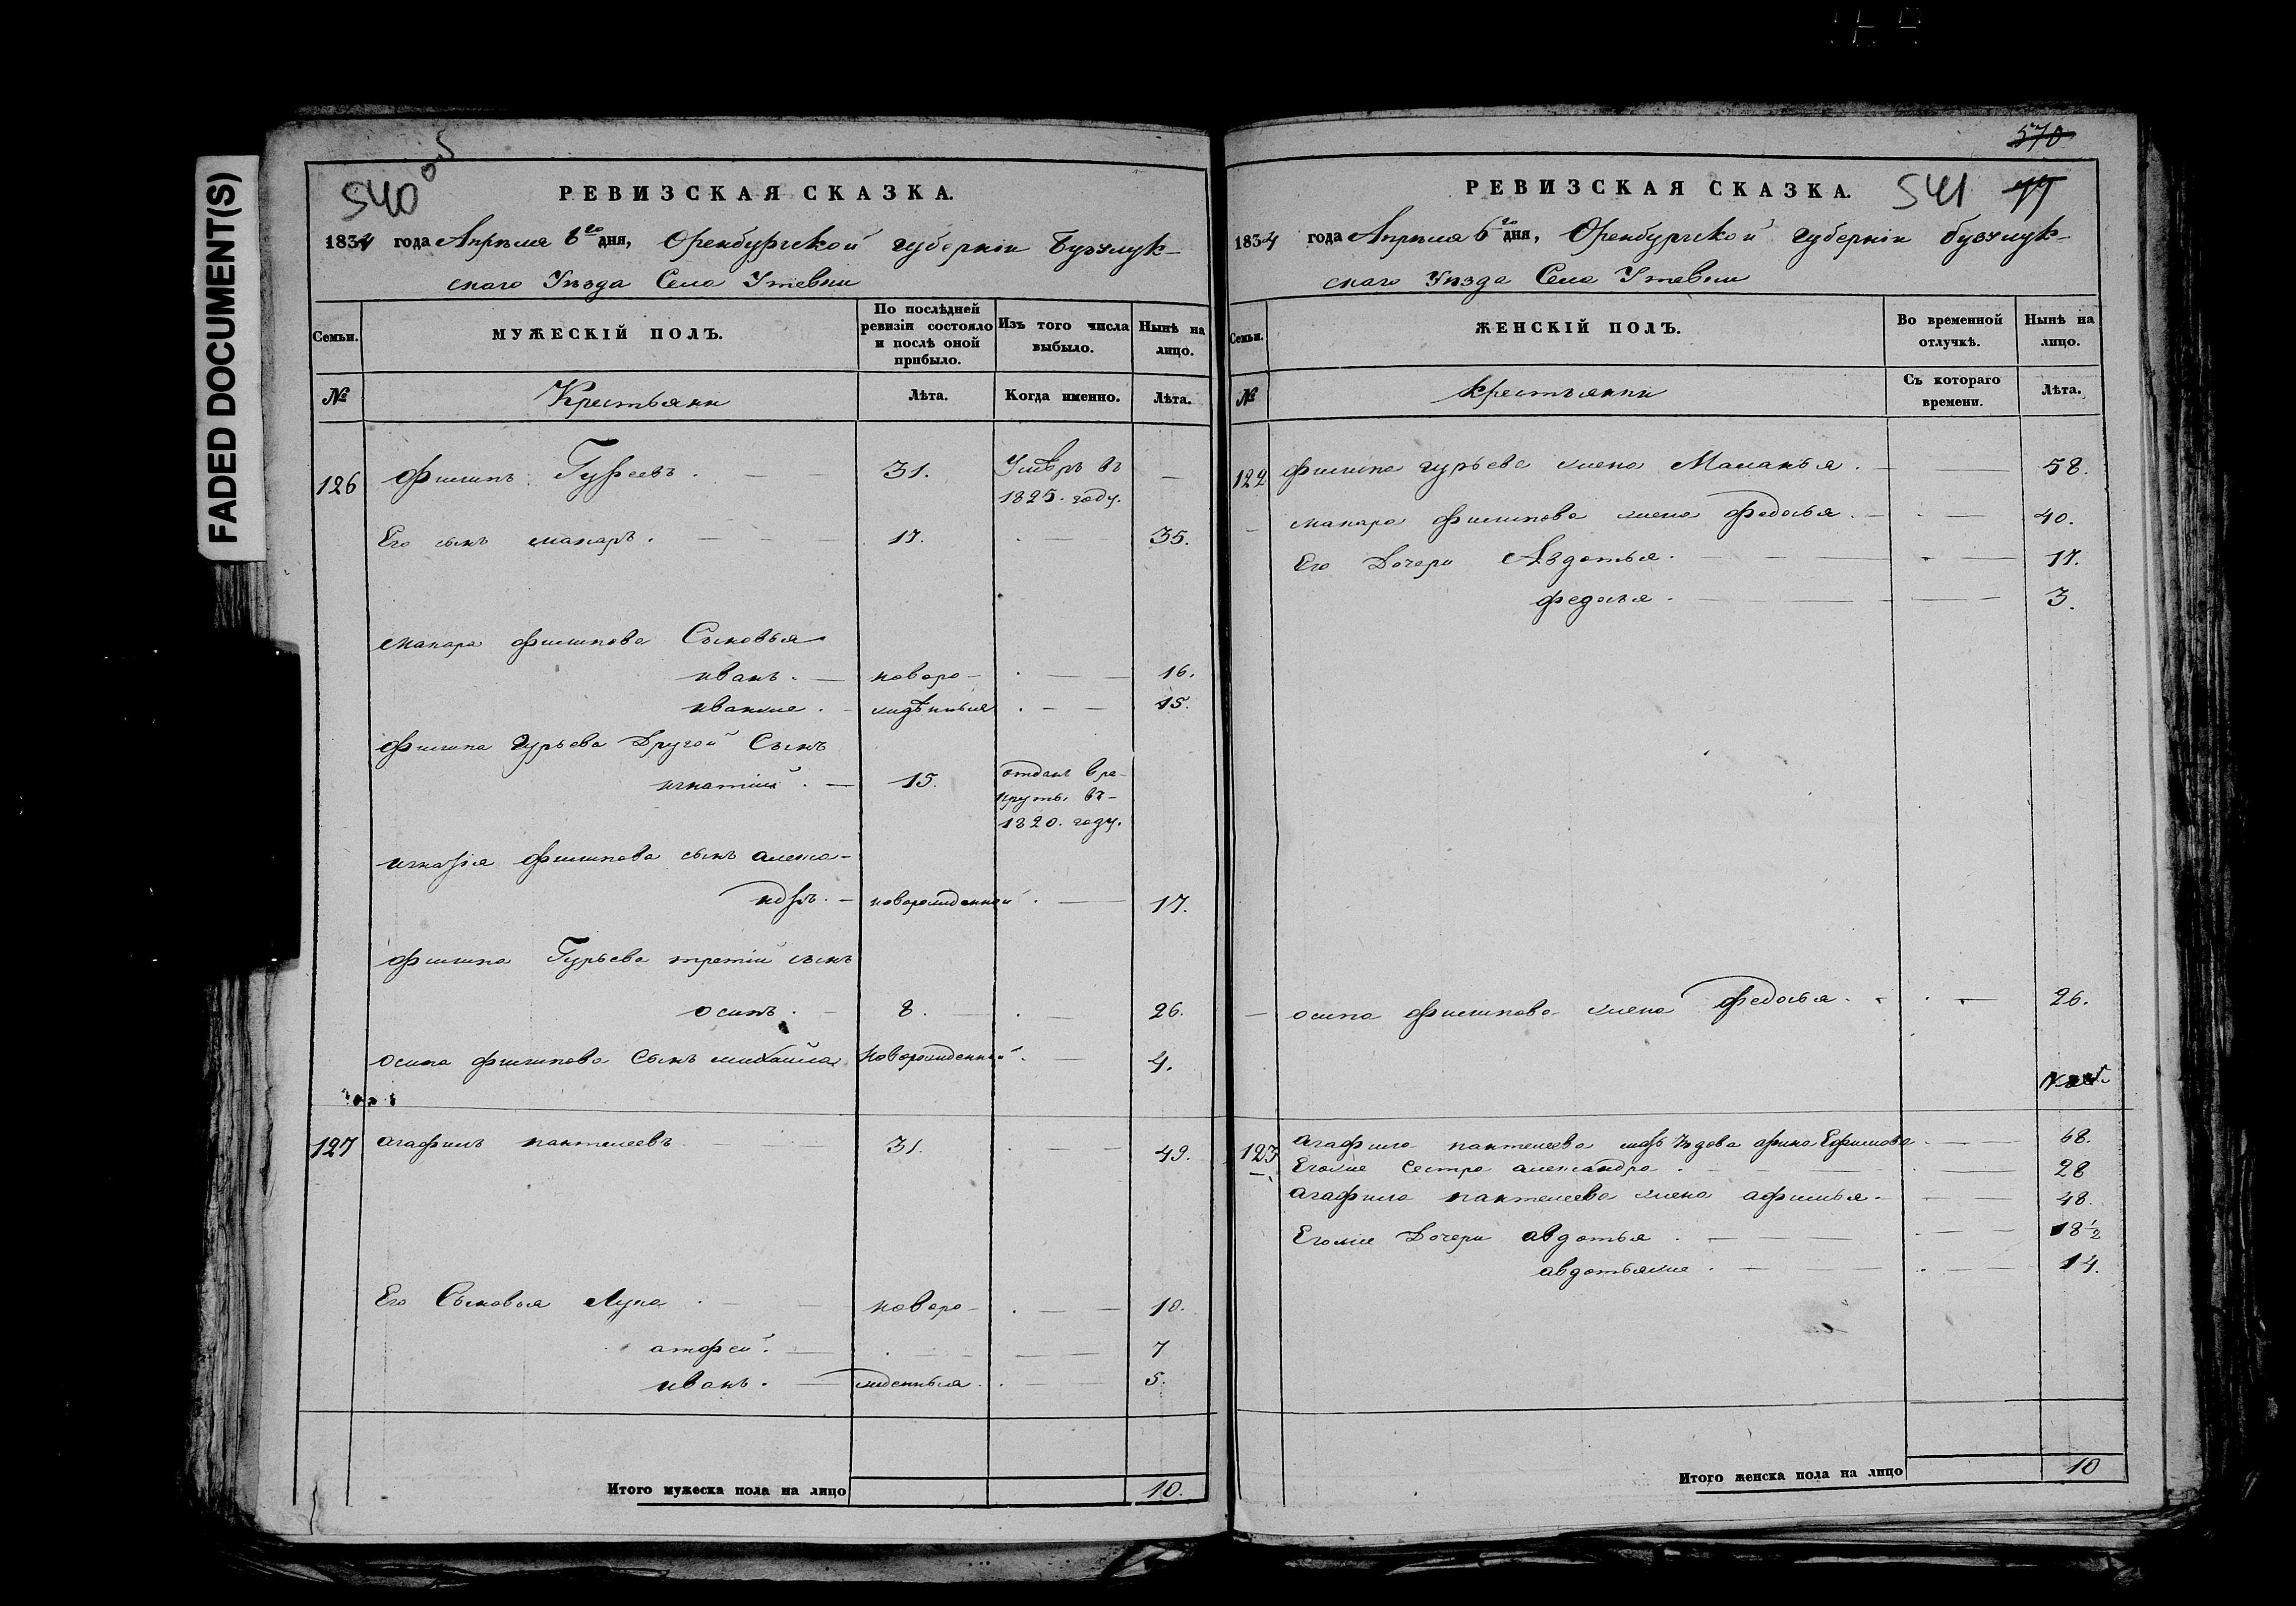 FADED DOCUMENT(S)
540 об
РЕВИЗСКАЯ СКАЗКА.
1834 года Апреля 6го дня, Оренбургской губернiи Бузулук-
скаго Уезда Села Утевки
Семьи.
МУЖЕСКІЙ ПОЛЪ.
По послѣдней ревизіи состояло и послѣ оной прибыло.
Изъ того числа выбыло.
Нынѣ на лицо.
№
Крестьяни
Лѣта.
Когда именно.
Лѣта.
126 Филипъ Гурьевъ. 31. Умѣръ въ —
1825. году.
Его сынъ макаръ. 17. 35.
Макара филипова Сыновья
иванъ. новоро- 16.
иванже. жидѣнныя 15.
Филипа Гурьева Другой Сынъ
игнатiй. 15. отданъ вре-
круты въ-
1820. году.
игнатiя филипова сынъ алекса-
ндръ. новорожденной 17.
филипа Гурьева третiй сынъ
осипъ. 8. 26.
осипа филипова Сынъ михайла Новорожденной 4.
127 агафилъ пантелеевъ 31. 49.
Его Сыновья Лука новоро- 10.
атфей. 7
иванъ. жденныя 5.
Итого мужеска пола на лицо 10.
570
РЕВИЗСКАЯ СКАЗКА.
541
1834 года Апреля 6го дня, Оренбургской губернiи бузулук-
скаго Уезда Села Утевки
Семьи.
ЖЕНСКІЙ ПОЛЪ.
Во временной отлучкѣ.
Нынѣ на лицо.
№
крестьянки
Съ котораго времени.
Лѣта.
122 филипа гурьева жена Маланья. 58.
макара филипова жена федосья. 40.
Его Дочери Авдотья. 17.
федосья. 3.
осипа филипова жена федосья. 26.
123 агафила пантелеева мать вдова арина Ефимова 68.
Егоже Сестра александра. 28
агафила пантелеева жена афимья. 48.
Егоже Дочери авдотья. 18½
авдотьяже. 14.
Итого женска пола на лицо 10